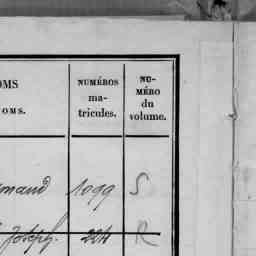 OMS
OMS.
NUMÉROS
ma-
tricules.
NU-
MÉRO
du
volume.
mand 1099 S
Joseph. 224 R